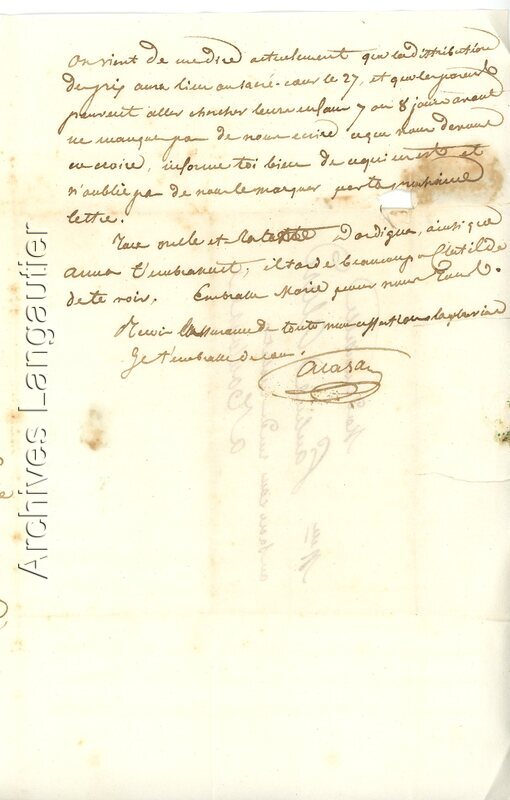 On vient de me dire actuellement que la distribution
des prix aura lieu au sacré-cœur le 27, et que les parents
peuvent aller chercher leurs enfans 7 ou 8 jours avant
ne manque pas de nous écrire ce que nous devons
en croire, informe toi bien de ce qui en est et
n'oublie pas de nous le marquer par ta prochaine
lettre.
Ton oncle et ta tante Dardignac, ainsi que
anna t'embrassent, il tarde beaucoup a Clotilde
de te voir. Embrasse Marie pour nous tous.
Reçois l'assurance de toute mon affection la plus
Je t'embrasse de cœur.
Archives Langautier